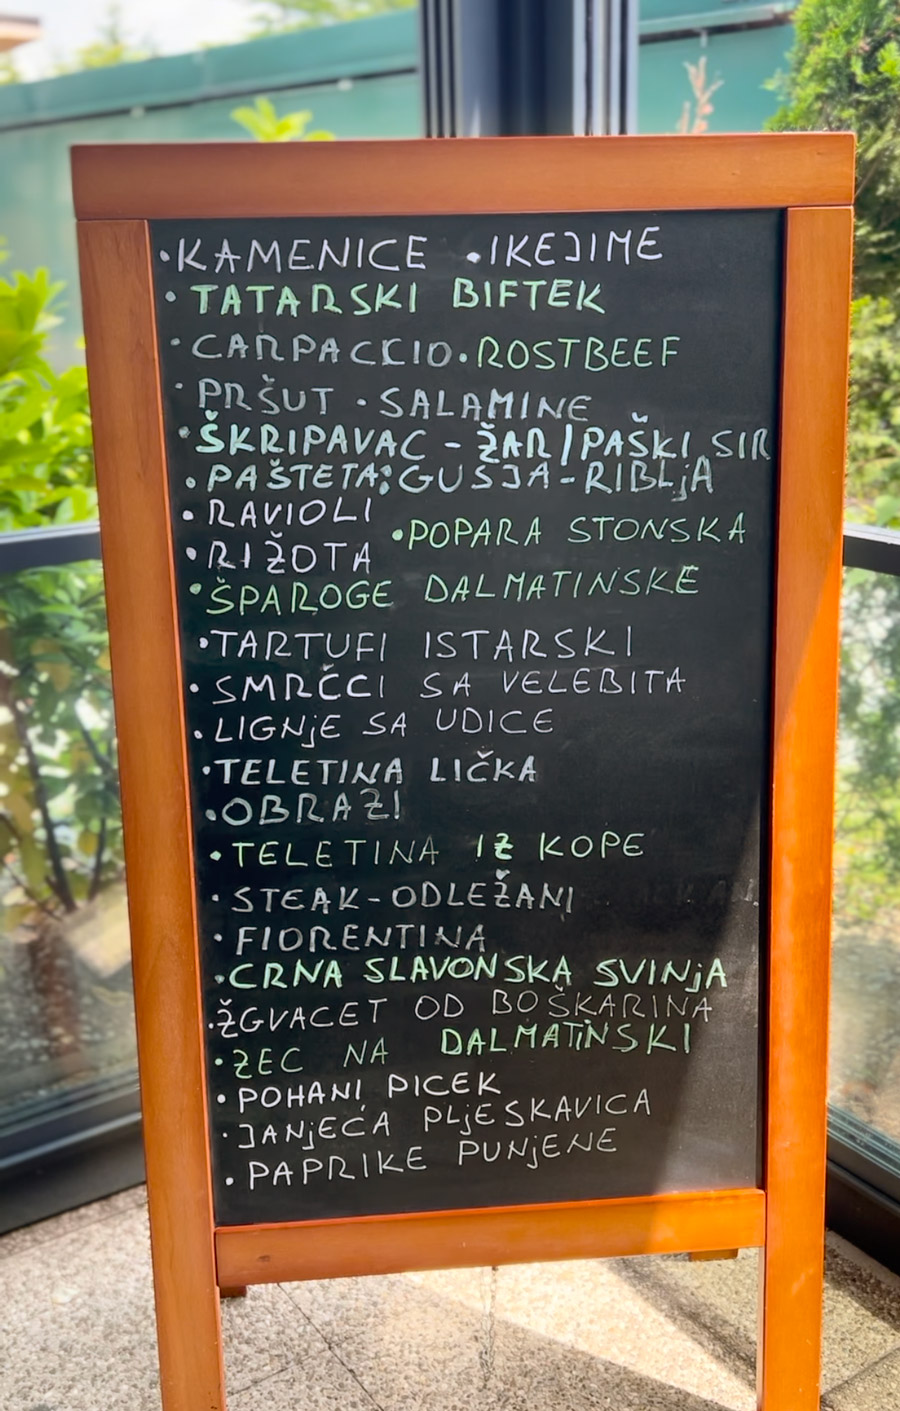 •KAMENICE •IKEJIME
•TATARSKI BIFTEK
•CARPACCIO •ROSTBEEF
•PRŠUT •SALAMINE
•ŠKRIPAVAC - ŽAR/PAŠKI SIR
•PAŠTETA: GUSJA - RIBLjA
•RAVIOLI
•POPARA STONSKA
•RIŽOTA
•ŠPAROGE DALMATINSKE
•TARTUFI ISTARSKI
•SMRČCI SA VELEBITA
•LIGNjE SA UDICE
•TELETINA LIČKA
•OBRAZI
•TELETINA IZ KOPE
•STEAK-ODLEŽANI
•FIORENTINA
•CRNA SLAVONSKA SVINjA
•ŽGVACET OD BOŠKARINA
•ZEC NA DALMATiNSKI
•POHANI PICEK
•JANjEĆA PLjESKAVICA
•PAPRIKE PUNjENE